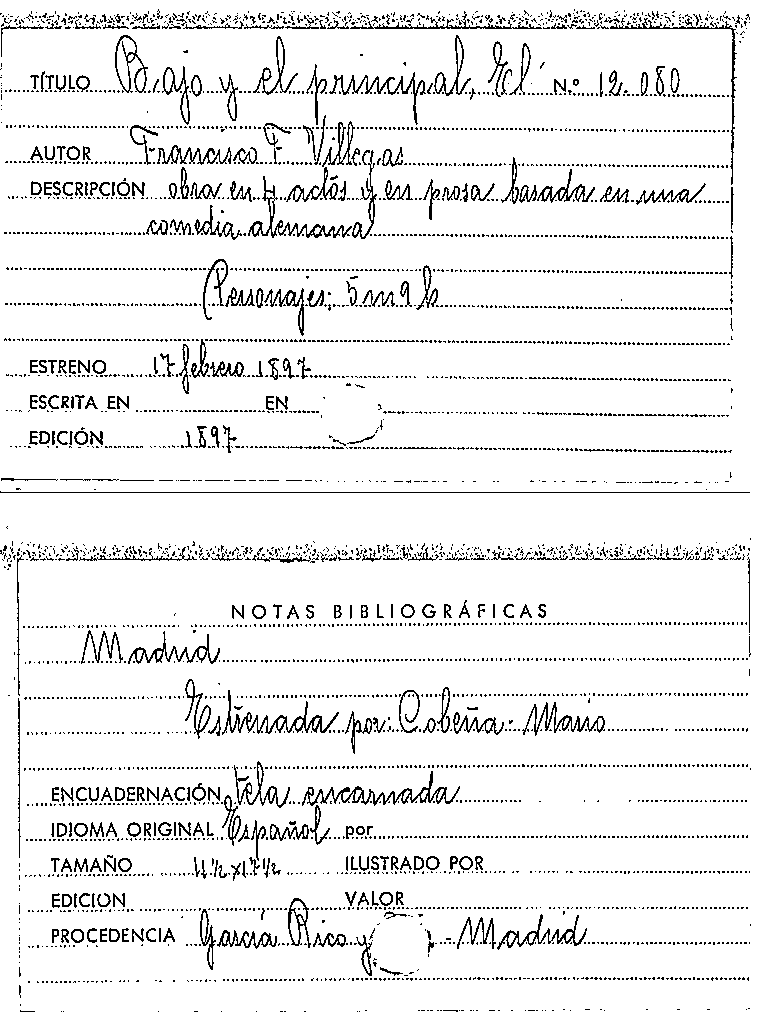 TÍTULO Bajo y el principal, El N.º 12.080
AUTOR Francisco F. Villegas
DESCRIPCIÓN obra en 4 actos y en prosa basada en una
comedia alemana
Personajes: 5 m 9 h
ESTRENO 17 febrero 1897
ESCRITA EN EN
EDICIÓN 1897
NOTAS BIBLIOGRÁFICAS
Madrid
Estrenada por: Cobeña - Mario
ENCUADERNACIÓN tela encarnada
IDIOMA ORIGINAL Español por
TAMAÑO 11½ x 17½ ILUSTRADO POR
EDICION VALOR
PROCEDENCIA García Rico y - Madrid